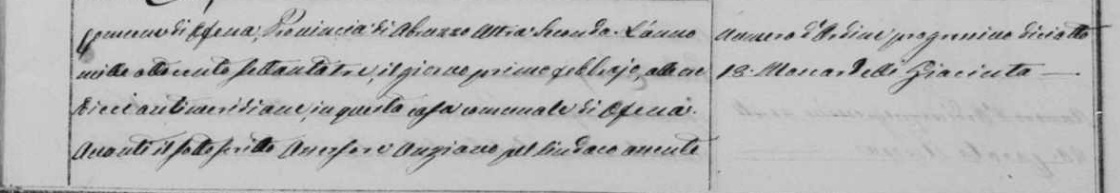 Comune di Ofena, Provincia di Abruzzo Ultra Secondo. L'anno
mille ottocento settantatre, il giorno primo febbrajo, alle ore
dieci antimeridiane, in questa casa comunale di Ofena.
Avanti il sottoscritto Assessore Anziano pel Sindaco assente
Numero d'Ordine progressivo diciotto
18. Monardelli Giacinta —